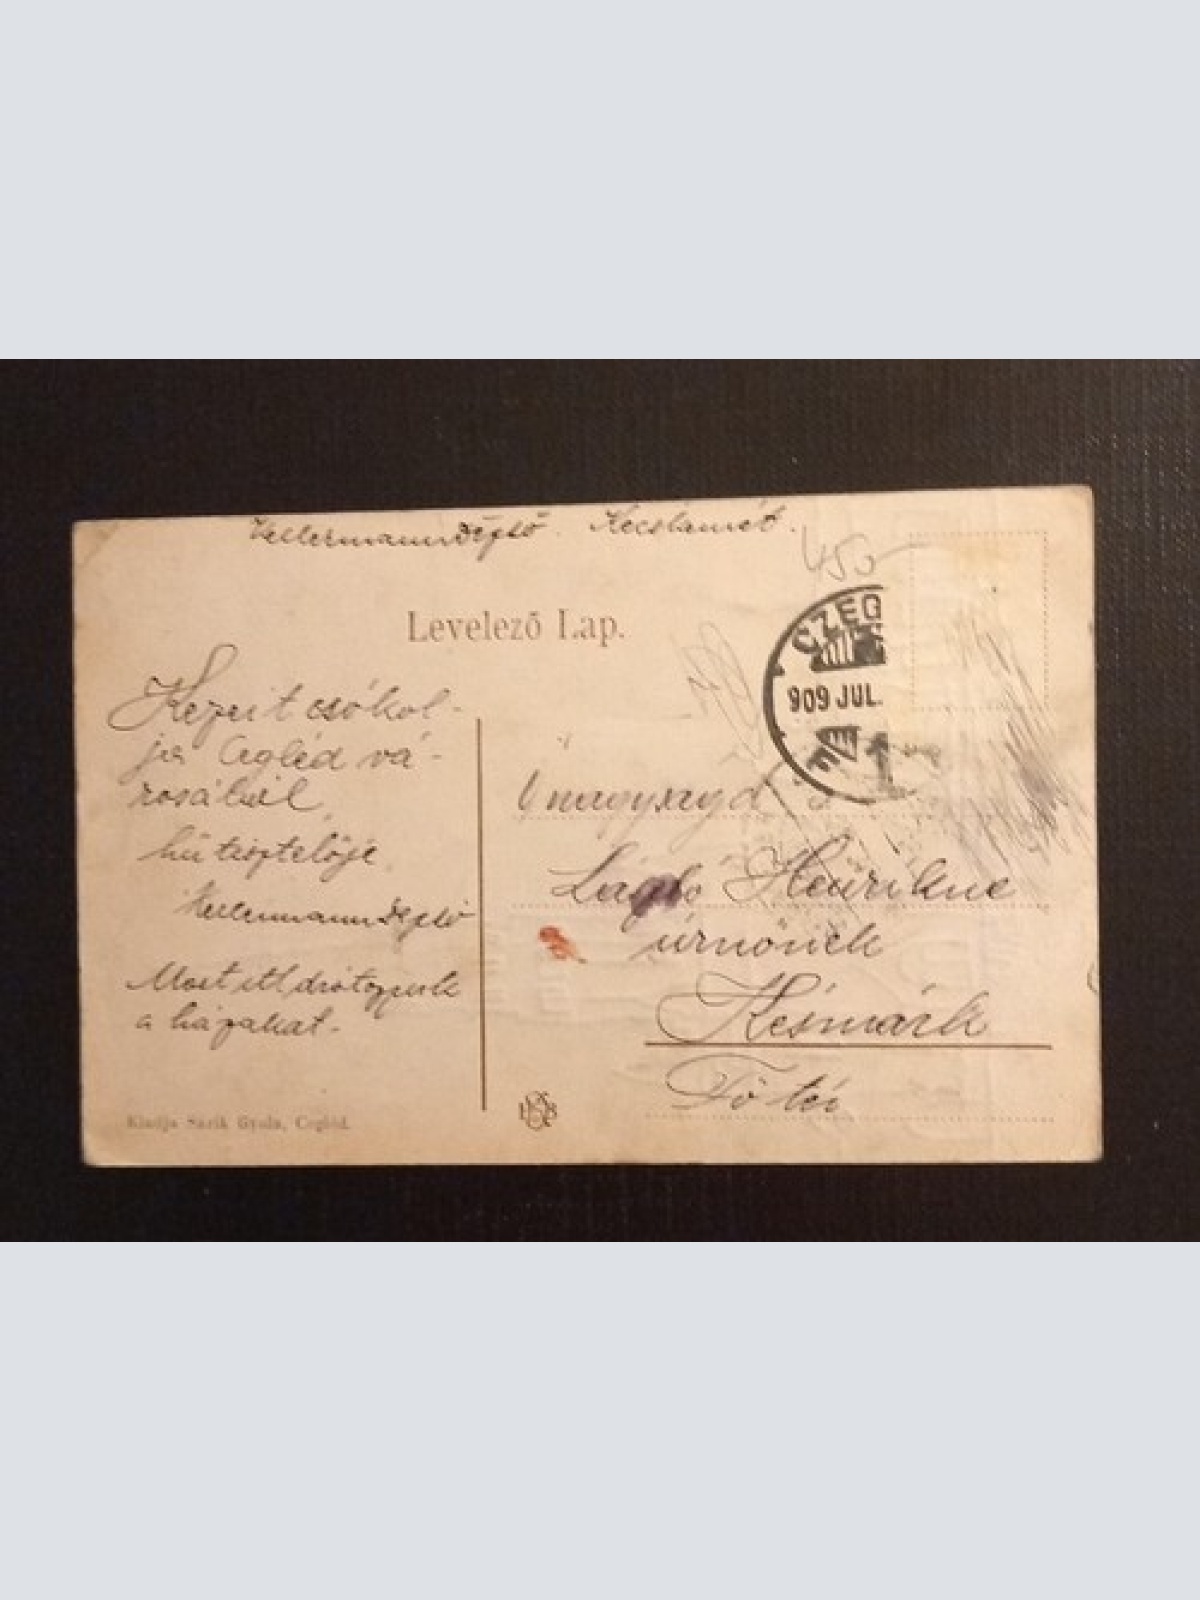 Kellermann Dezső. Kecskemét.
450
Levelező Lap.
CZEG
909 JUL.
1
Kezeit csókol-
ja Cegléd vá-
rosából,
hű tisztelője
Kellermann Dezső
Most itt drótozzuk
a házakat.
Kiadja Sárik Gyula, Cegléd.
Őnagysága
László Henrikné
úrnőnek
Késmárk
Fő tér